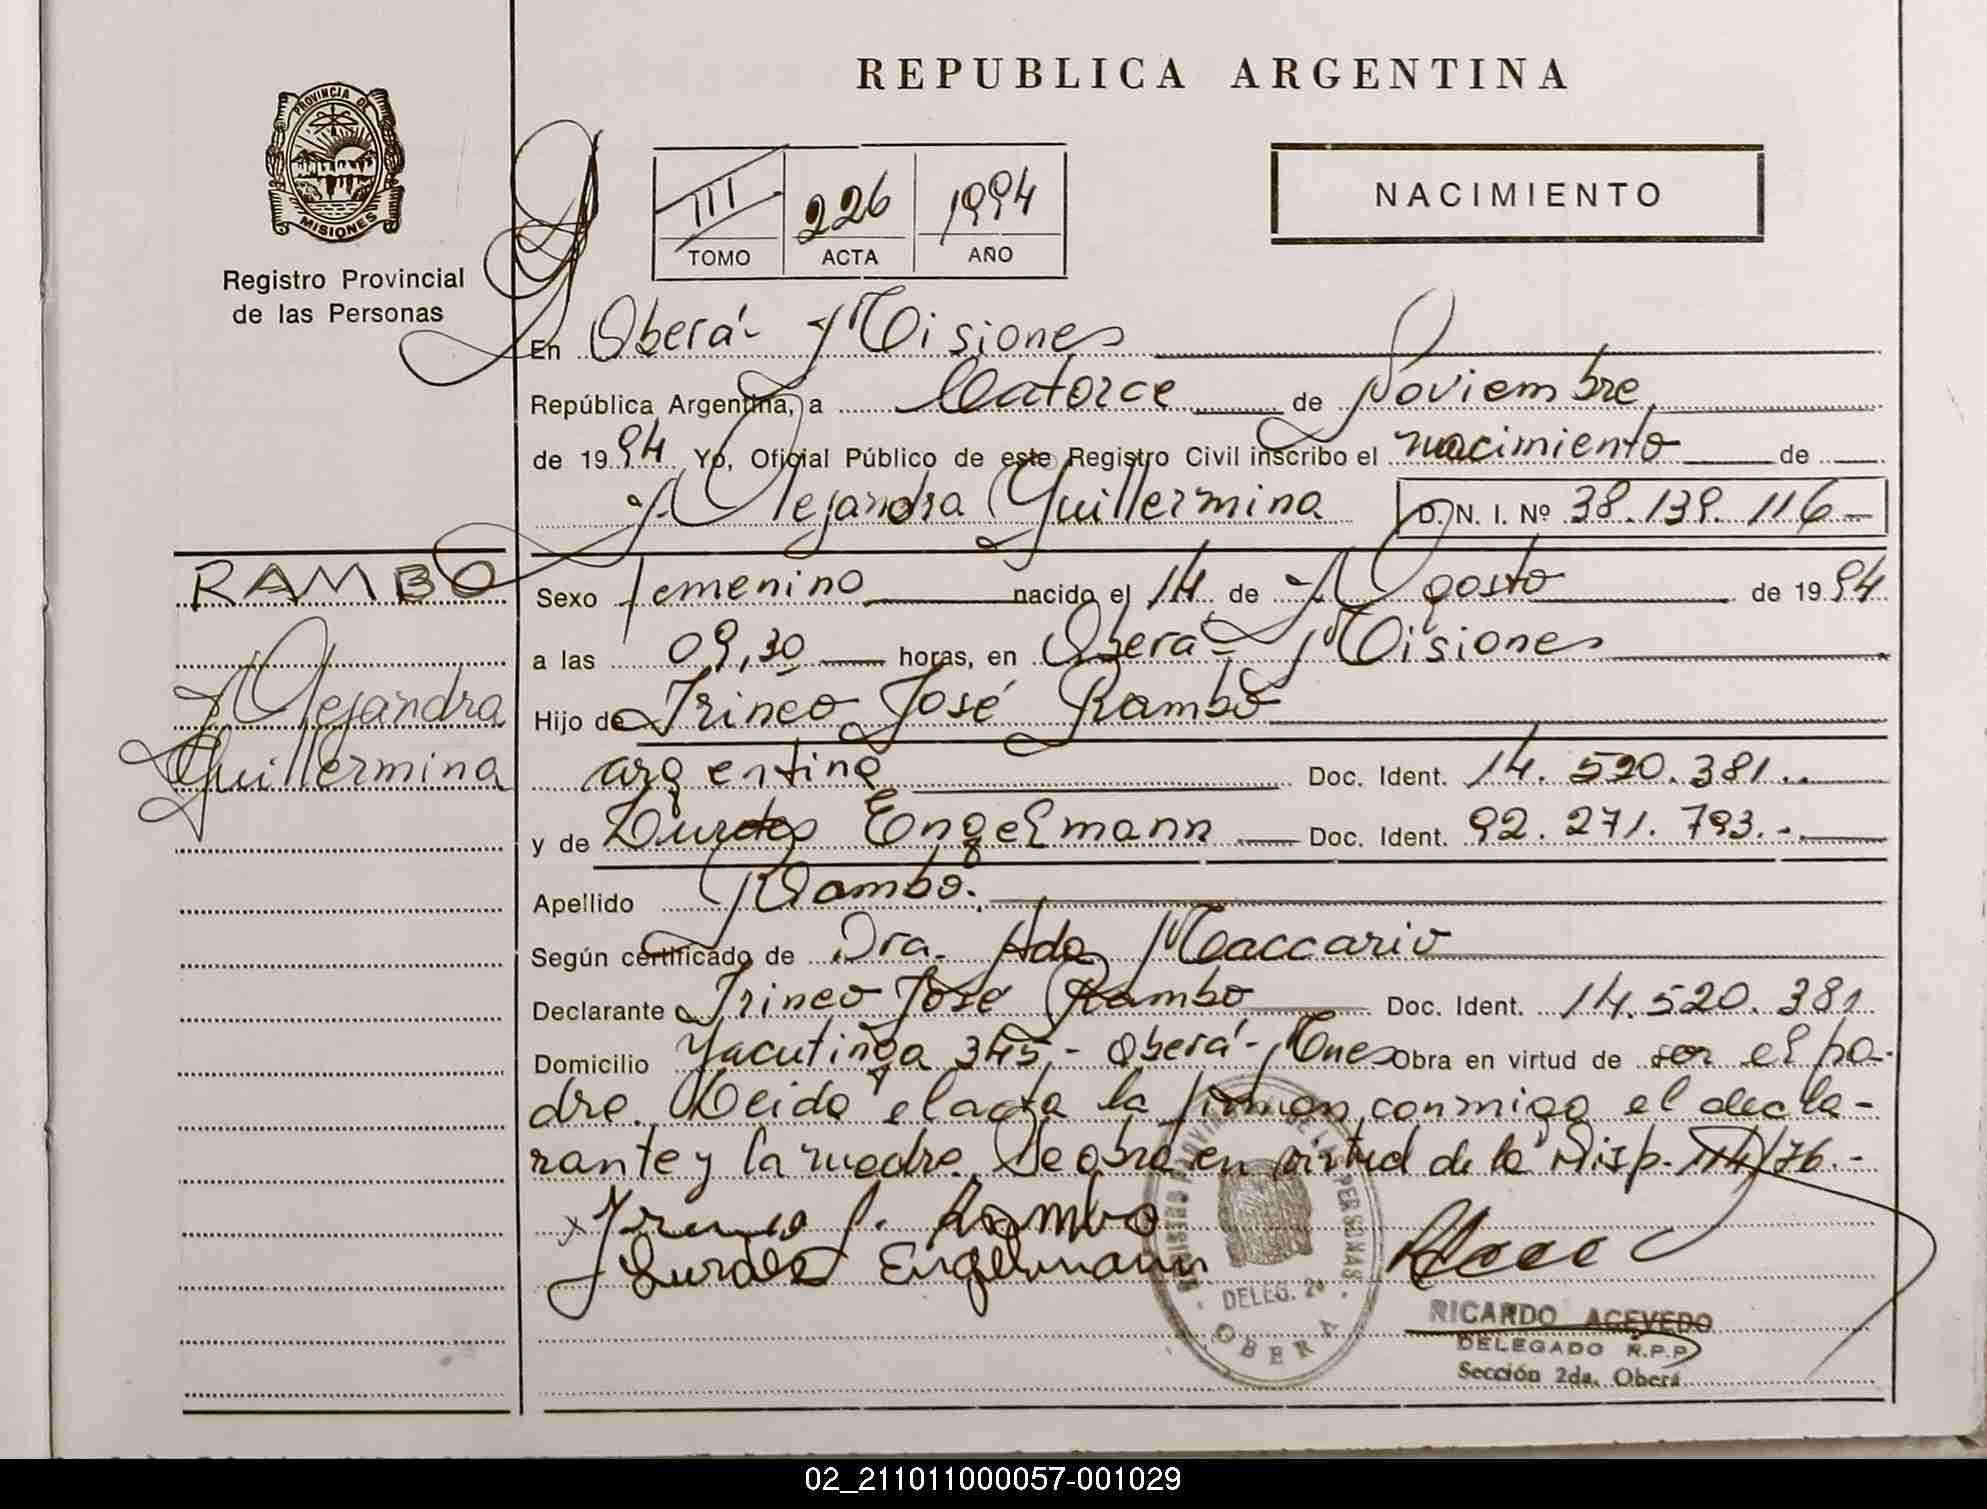 REPUBLICA ARGENTINA
PROVINCIA DE
MISIONES
Registro Provincial
de las Personas
III 226 1994
TOMO ACTA AÑO
NACIMIENTO
En Oberá - Misiones
República Argentina, a Catorce de Noviembre
de 1994 Yo, Oficial Público de este Registro Civil inscribo el nacimiento de
Alejandra Guillermina D. N. I. Nº 38.139.116-
RAMBO
Alejandra
Guillermina
Sexo femenino nacido el 14 de Agosto de 1994
a las 09,30 horas, en Oberá - Misiones
Hijo de Irineo José Rambo
argentino Doc. Ident. 14.520.381..
y de Lurdes Engelmann Doc. Ident. 92.271.793.-
Apellido Rambo.
Según certificado de Dra. Ada Maccario
Declarante Irineo José Rambo Doc. Ident. 14.520.381
Domicilio Yacutinga 345,- Oberá-, Mnes Obra en virtud de ser el pa-
dre. Leida el acta la firman conmigo el decla-
rante y la madre. Se obra en virtud de la Disp. /76.-
x Irineo J. Rambo
Lurdes Engelmann
PERSONAS
DELEG. 2ª
OBERA
RICARDO ACEVEDO
DELEGADO R.P.P
Sección 2da. Oberá
02_211011000057-001029